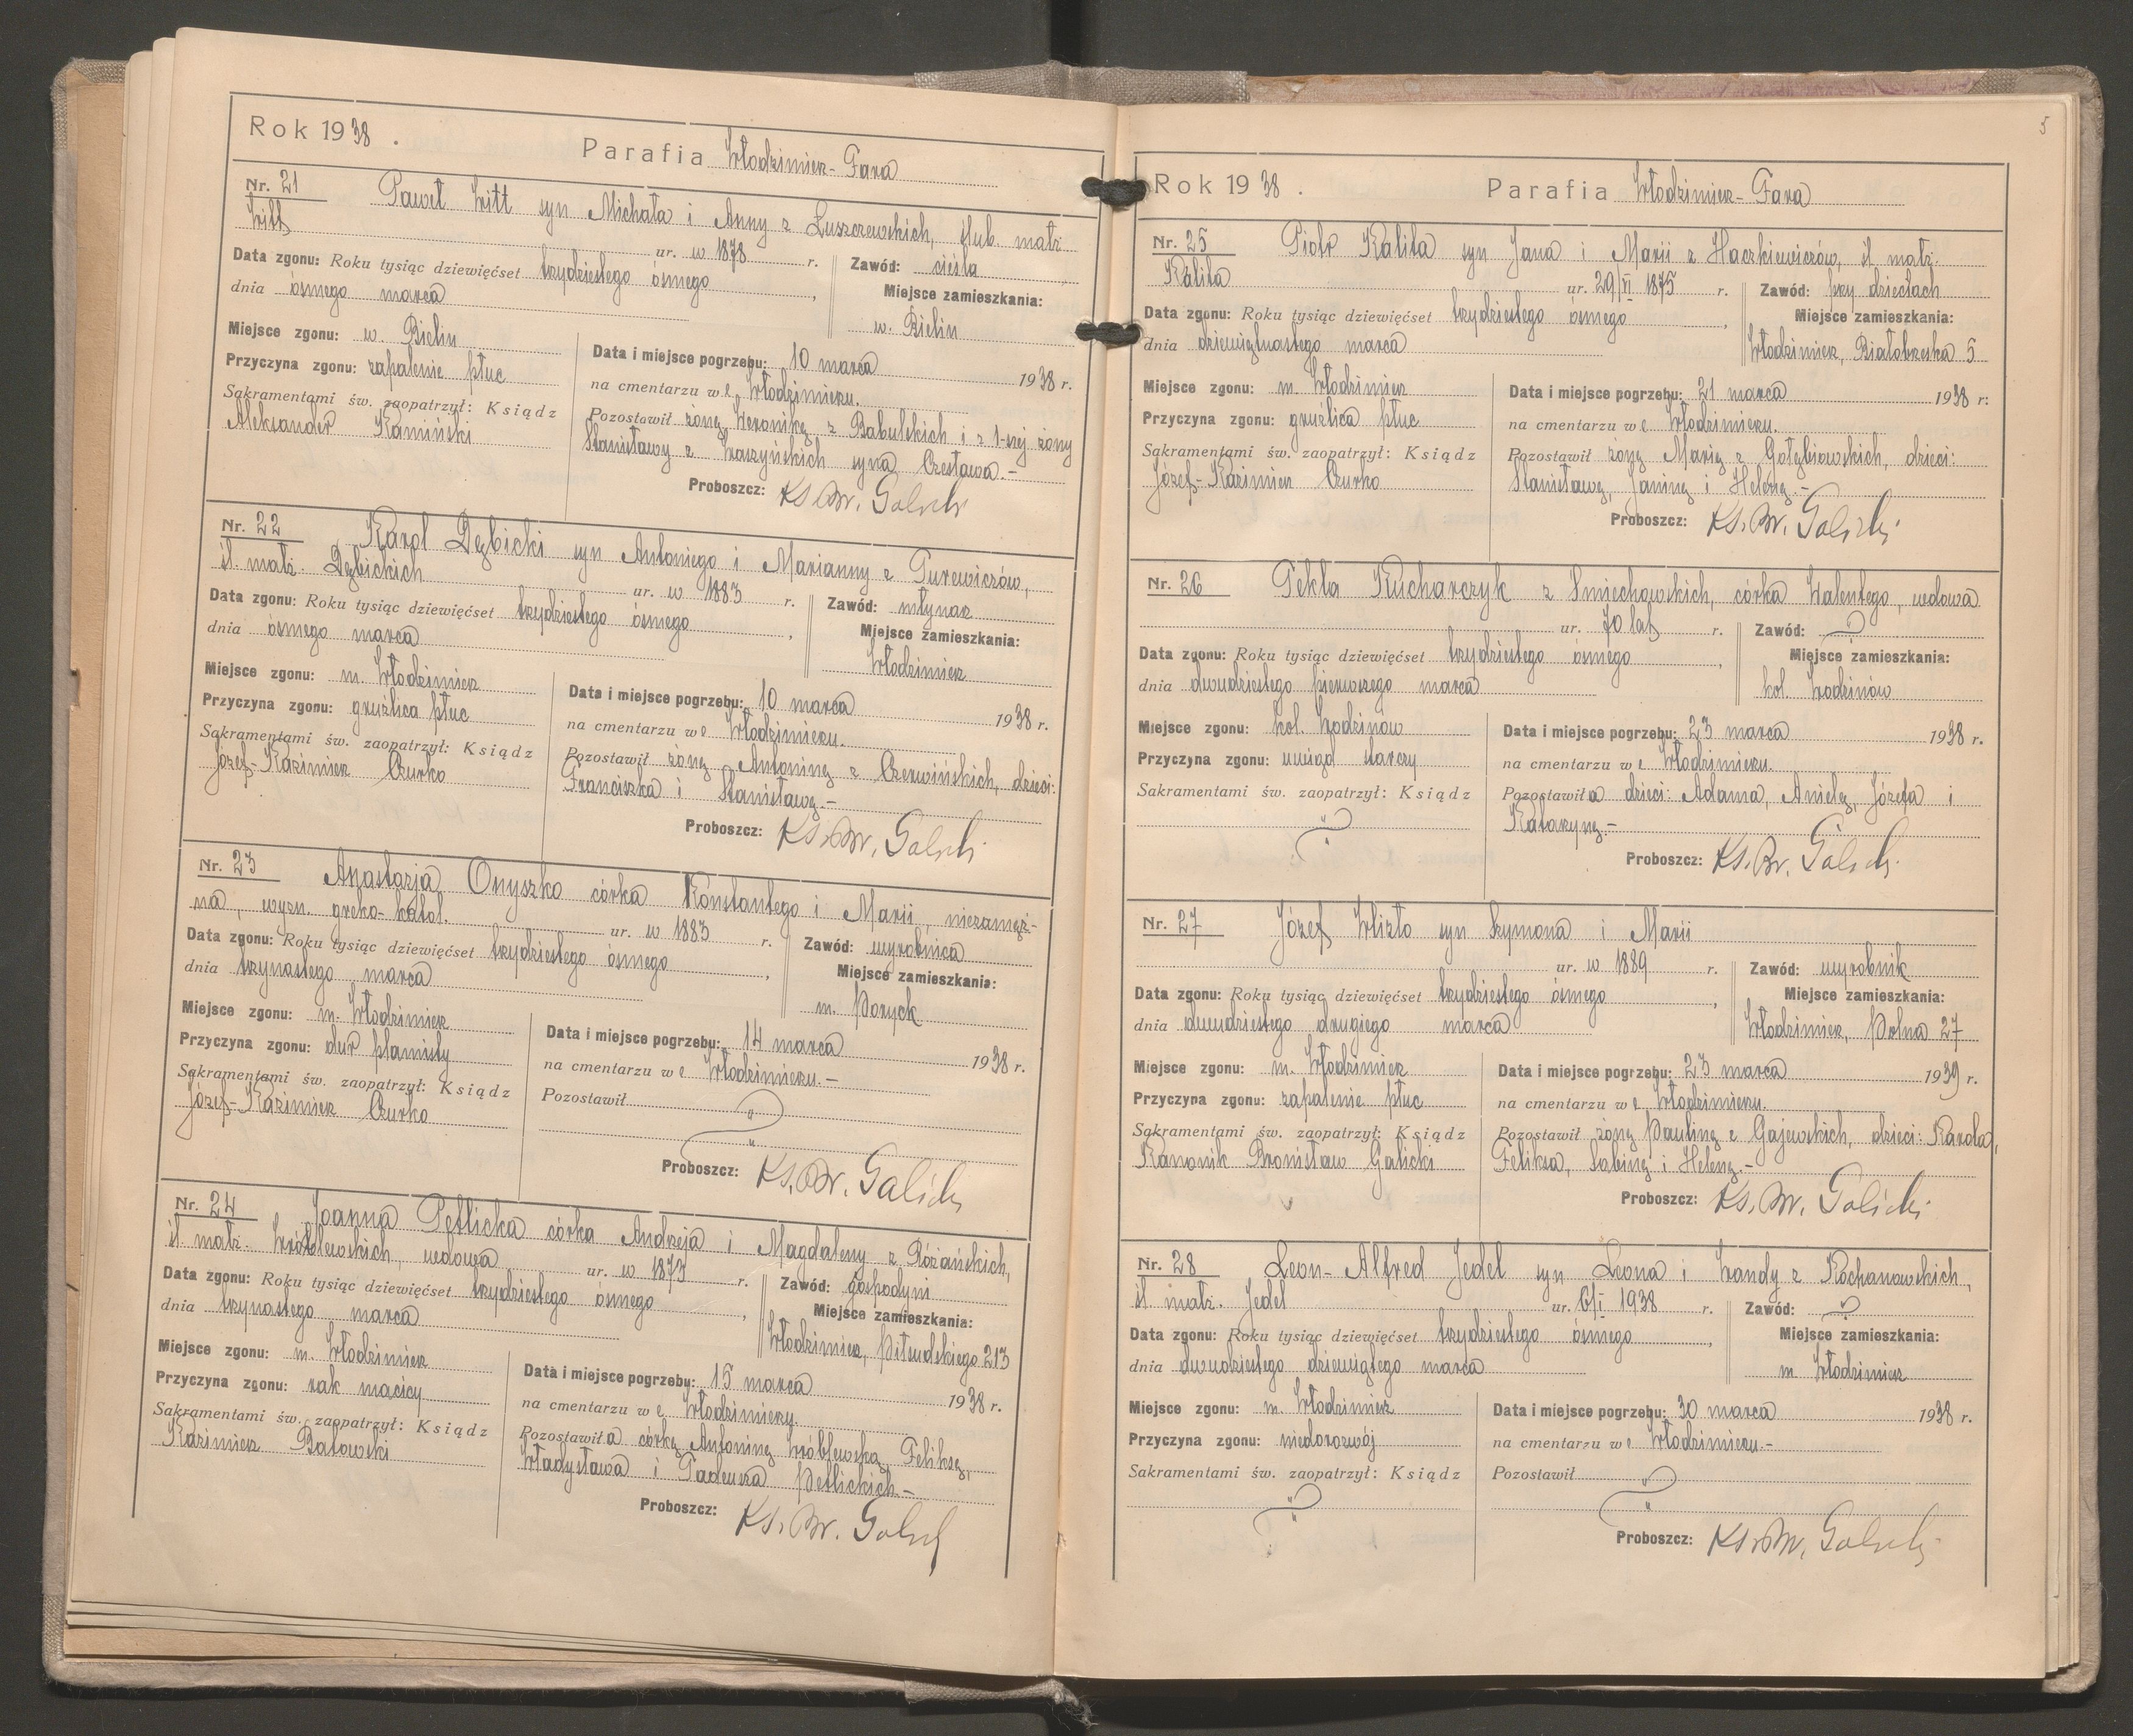 Rok 1938.
Parafia Włodzimierz-Fara
Nr. 21 Paweł Witt syn Michała i Anny z Łuszczewskich, ślub. małż.
Witt ur. w 1878 r.
Zawód: cieśla
Data zgonu: Roku tysiąc dziewięćset trzydziestego ósmego,
dnia ósmego marca
Miejsce zamieszkania:
w. Bielin
Miejsce zgonu: w. Bielin
Przyczyna zgonu: zapalenie płuc
Sakramentami św. zaopatrzył: Ksiądz
Aleksander Kamiński
Data i miejsce pogrzebu: 10 marca 1938 r.
na cmentarzu we Włodzimierzu.
Pozostawił żonę Weronikę z Babulskich i z 1-szej żony
Stanisławy z Waszyńskich syna Czesława.-
Proboszcz: Ks. Br. Galicki
Nr. 22 Karol Dębicki syn Antoniego i Marianny z Gurewiczów,
śl. małż. Dębickich ur. w 1883 r.
Zawód: młynarz
Data zgonu: Roku tysiąc dziewięćset trzydziestego ósmego,
dnia ósmego marca
Miejsce zamieszkania:
Włodzimierz
Miejsce zgonu: m. Włodzimierz
Przyczyna zgonu: gruźlica płuc
Sakramentami św. zaopatrzył: Ksiądz
Józef-Kazimierz Czurko
Data i miejsce pogrzebu: 10 marca 1938 r.
na cmentarzu we Włodzimierzu.
Pozostawił żonę Antoninę z Czerwińskich, dzieci:
Franciszka i Stanisławę.-
Proboszcz: Ks. Br. Galicki
Nr. 23 Anastazja Onyszko córka Konstantego i Marii, niezamęż-
na, wyzn. greko-katol. ur. w 1883 r.
Zawód: wyrobnica
Data zgonu: Roku tysiąc dziewięćset trzydziestego ósmego,
dnia trzynastego marca
Miejsce zamieszkania:
m. Poryck
Miejsce zgonu: m. Włodzimierz
Przyczyna zgonu: dur plamisty
Sakramentami św. zaopatrzył: Ksiądz
Józef-Kazimierz Czurko
Data i miejsce pogrzebu: 14 marca 1938 r.
na cmentarzu we Włodzimierzu.-
Pozostawił "
"
Proboszcz: Ks. Br. Galicki
Nr. 24 Joanna Petlicka córka Andrzeja i Magdaleny z Różańskich,
śl. małż. Wróblewskich, wdowa ur. w 1873 r.
Zawód: gospodyni
Data zgonu: Roku tysiąc dziewięćset trzydziestego ósmego,
dnia trzynastego marca
Miejsce zamieszkania:
Włodzimierz, Piłsudskiego 213
Miejsce zgonu: m. Włodzimierz
Przyczyna zgonu: rak macicy
Sakramentami św. zaopatrzył: Ksiądz
Kazimierz Batowski
Data i miejsce pogrzebu: 15 marca 1938 r.
na cmentarzu we Włodzimierzu.
Pozostawiła córkę Antoninę Wróblewską, Feliksę,
Władysława i Tadeusza Petlickich.-
Proboszcz: Ks. Br. Galicki
5
Rok 1938.
Parafia Włodzimierz-Fara
Nr. 25 Piotr Kalita syn Jana i Marii z Haczkiewiczów, śl. małż.
Kalita ur. 29/VI 1875 r.
Zawód: przy dzieciach
Data zgonu: Roku tysiąc dziewięćset trzydziestego ósmego,
dnia dziewiętnastego marca
Miejsce zamieszkania:
Włodzimierz, Białobrzeska 5
Miejsce zgonu: m. Włodzimierz
Przyczyna zgonu: gruźlica płuc
Sakramentami św. zaopatrzył: Ksiądz
Józef-Kazimierz Czurko
Data i miejsce pogrzebu: 21 marca 1938 r.
na cmentarzu we Włodzimierzu.
Pozostawił żonę Marię z Gołębiowskich, dzieci:
Stanisławę, Janinę i Helenę.-
Proboszcz: Ks. Br. Galicki
Nr. 26 Tekla Kucharczyk z Smiechowskich, córka Walentego, wdowa
ur. 70 lat r.
Zawód: "
Data zgonu: Roku tysiąc dziewięćset trzydziestego ósmego,
dnia dwudziestego pierwszego marca
Miejsce zamieszkania:
kol. Wodzinów
Miejsce zgonu: kol. Wodzinów
Przyczyna zgonu: uwiąd starczy
Sakramentami św. zaopatrzył: Ksiądz
"
Data i miejsce pogrzebu: 23 marca 1938 r.
na cmentarzu we Włodzimierzu.
Pozostawiła dzieci: Adama, Anielę, Józefa i
Katarzynę.-
Proboszcz: Ks. Br. Galicki
Nr. 27 Józef Wlizło syn Szymona i Marii
ur. w 1889 r.
Zawód: wyrobnik
Data zgonu: Roku tysiąc dziewięćset trzydziestego ósmego,
dnia dwudziestego drugiego marca
Miejsce zamieszkania:
Włodzimierz, Polna 27
Miejsce zgonu: m. Włodzimierz
Przyczyna zgonu: zapalenie płuc
Sakramentami św. zaopatrzył: Ksiądz
Kanonik Bronisław Galicki
Data i miejsce pogrzebu: 23 marca 1939 r.
na cmentarzu we Włodzimierzu.
Pozostawił żonę Paulinę z Gajewskich, dzieci: Karola,
Feliksa, Sabinę i Helenę.-
Proboszcz: Ks. Br. Galicki
Nr. 28 Leon-Alfred Jedel syn Leona i Wandy z Kochanowskich,
śl. małż. Jedel ur. 6/I 1938 r.
Zawód: "
Data zgonu: Roku tysiąc dziewięćset trzydziestego ósmego,
dnia dwudziestego dziewiątego marca
Miejsce zamieszkania:
m. Włodzimierz
Miejsce zgonu: m. Włodzimierz
Przyczyna zgonu: niedorozwój
Sakramentami św. zaopatrzył: Ksiądz
"
Data i miejsce pogrzebu: 30 marca 1938 r.
na cmentarzu we Włodzimierzu.-
Pozostawił "
"
Proboszcz: Ks. Br. Galicki